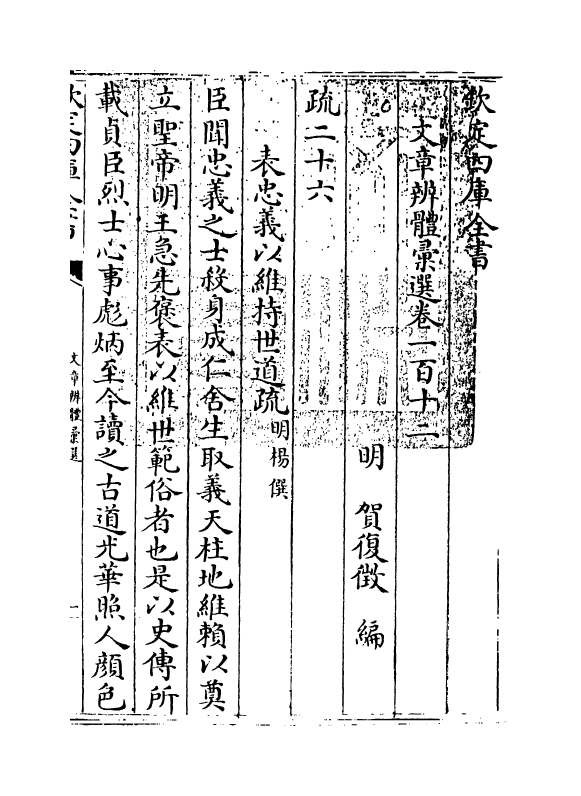 欽定四庫全書
文章辨體彙選卷一百十二
明 賀復徵 編
疏二十六
表忠義以維持世道疏明楊僎
臣聞忠義之士殺身成仁舍生取義天柱地維賴以奠
立聖帝明王急先褒表以維世範俗者也是以史傳所
載貞臣烈士心事彪炳至今讀之古道光華照人顏色
欽定四庫全書
文章辨體彙選
一